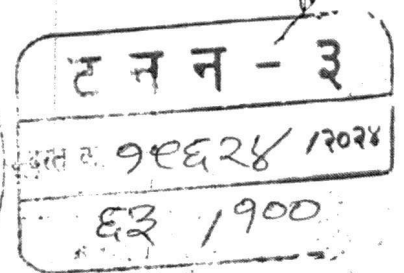 ट न न - ३
दस्त क्र. १९६२४ /२०२४
६३ /१००